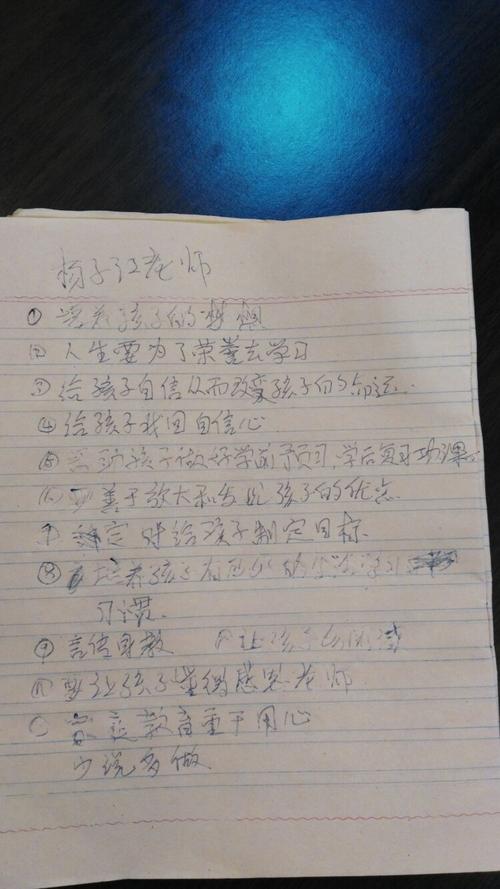 杨子江老师
① 培养孩子的梦想
② 人生要为了荣誉去学习
③ 给孩子自信从而改变孩子的命运.
④ 给孩子找回自信心
⑤ 帮助孩子做好学前预习,学后复习功课.
⑥ 要善于放大和发现孩子的优点
⑦ 定时给孩子制定目标
⑧ 培养孩子有 的 学习
习惯.
⑨ 言传身教 ⑩ 让孩子
⑪ 要让孩子懂得感恩老师
家庭教育重于用心
少说多做